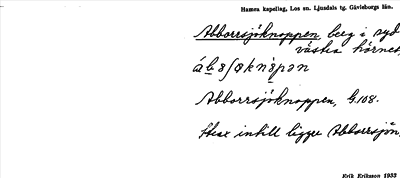 Hamra kapellag, Los sn. Ljusdals tg. Gävleborgs län.
Abborrsjöknoppen, berg i syd
västra hörnet,
Abborrsjöknoppen, G.108.
Strax intill ligger Abborrsjön.
Erik Eriksson 1933